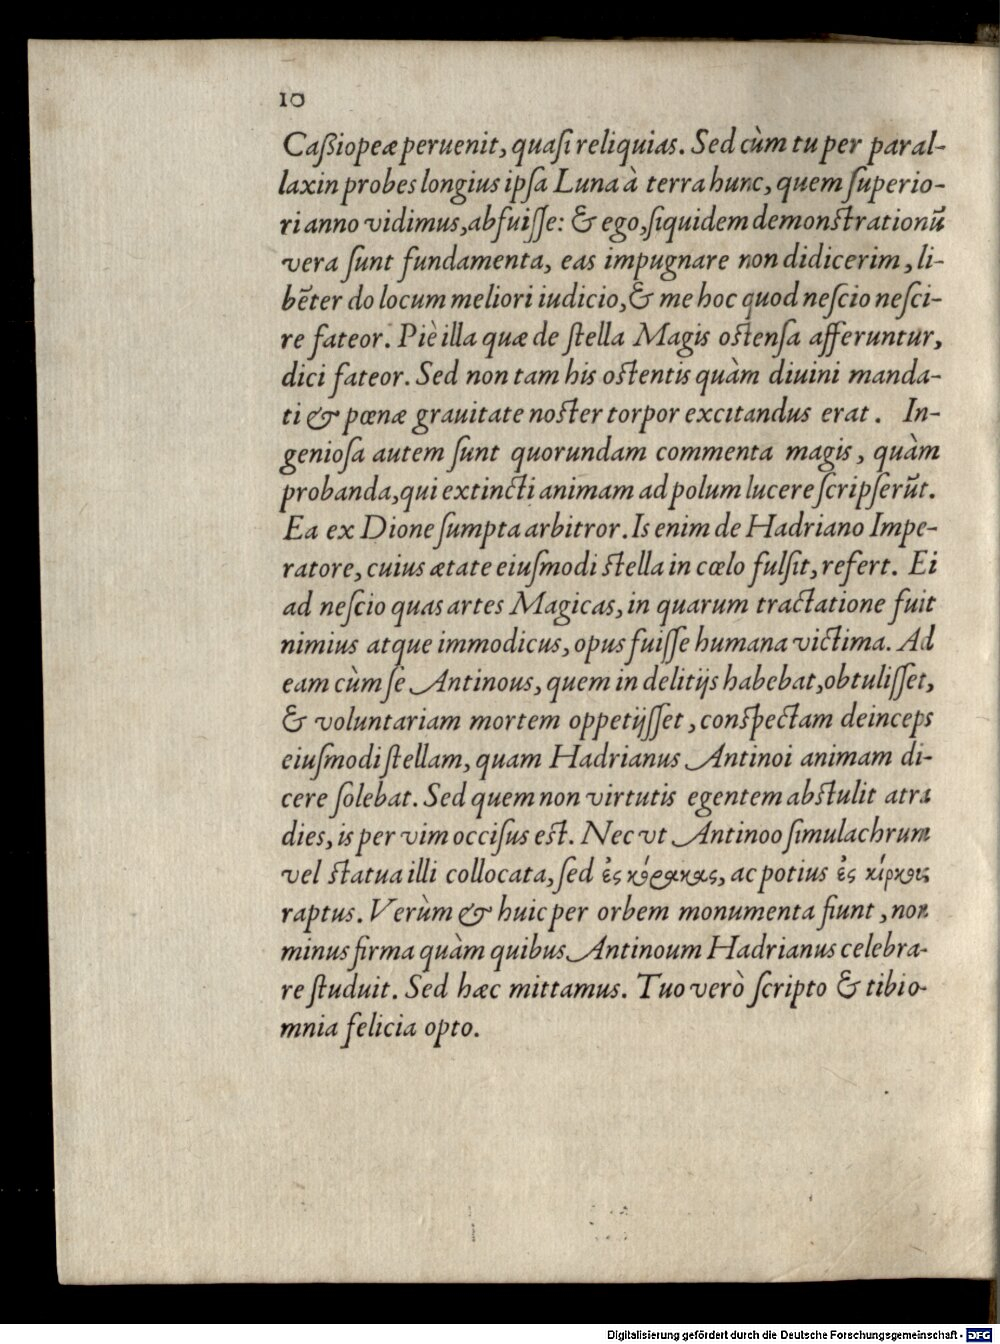 10
Caßiopeæ peruenit, quaſi reliquias. Sed cùm tu per paral-
laxin probes longius ipſa Luna à terra hunc, quem ſuperio-
ri anno vidimus, abfuiſſe: & ego, ſiquidem demonſtrationũ
vera ſunt fundamenta, eas impugnare non didicerim, li-
bẽter do locum meliori iudicio, & me hoc quod neſcio neſci-
re fateor. Piè illa quæ de ſtella Magis oſtenſa afferuntur,
dici fateor. Sed non tam his oſtentis quàm diuini manda-
ti & pœnæ grauitate noſter torpor excitandus erat. In-
genioſa autem ſunt quorundam commenta magis, quàm
probanda, qui extincti animam ad polum lucere ſcripſerũt.
Ea ex Dione ſumpta arbitror. Is enim de Hadriano Impe-
ratore, cuius ætate eiuſmodi ſtella in cœlo fulſit, refert. Ei
ad neſcio quas artes Magicas, in quarum tractatione fuit
nimius atque immodicus, opus fuiſſe humana victima. Ad
eam cùm ſe Antinous, quem in delitijs habebat, obtuliſſet,
& voluntariam mortem oppetijſſet, conſpectam deinceps
eiuſmodi ſtellam, quam Hadrianus Antinoi animam di-
cere ſolebat. Sed quem non virtutis egentem abſtulit atra
dies, is per vim occiſus eſt. Nec vt Antinoo ſimulachrum
vel ſtatua illi collocata, ſed ἐς κόρακας, ac potius ἐς κίρκοις
raptus. Verùm & huic per orbem monumenta fiunt, non
minus firma quàm quibus Antinoum Hadrianus celebra-
re ſtuduit. Sed hæc mittamus. Tuo verò ſcripto & tibi o-
mnia felicia opto.
Digitalisierung gefördert durch die Deutsche Forschungsgemeinschaft - DFG